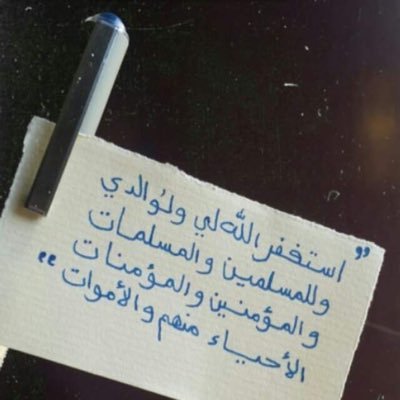 ”استغفر الله لي ولوالدي
وللمسلمين والمسلمات
والمؤمنين والمؤمنات
الأحياء منهم والأموات“